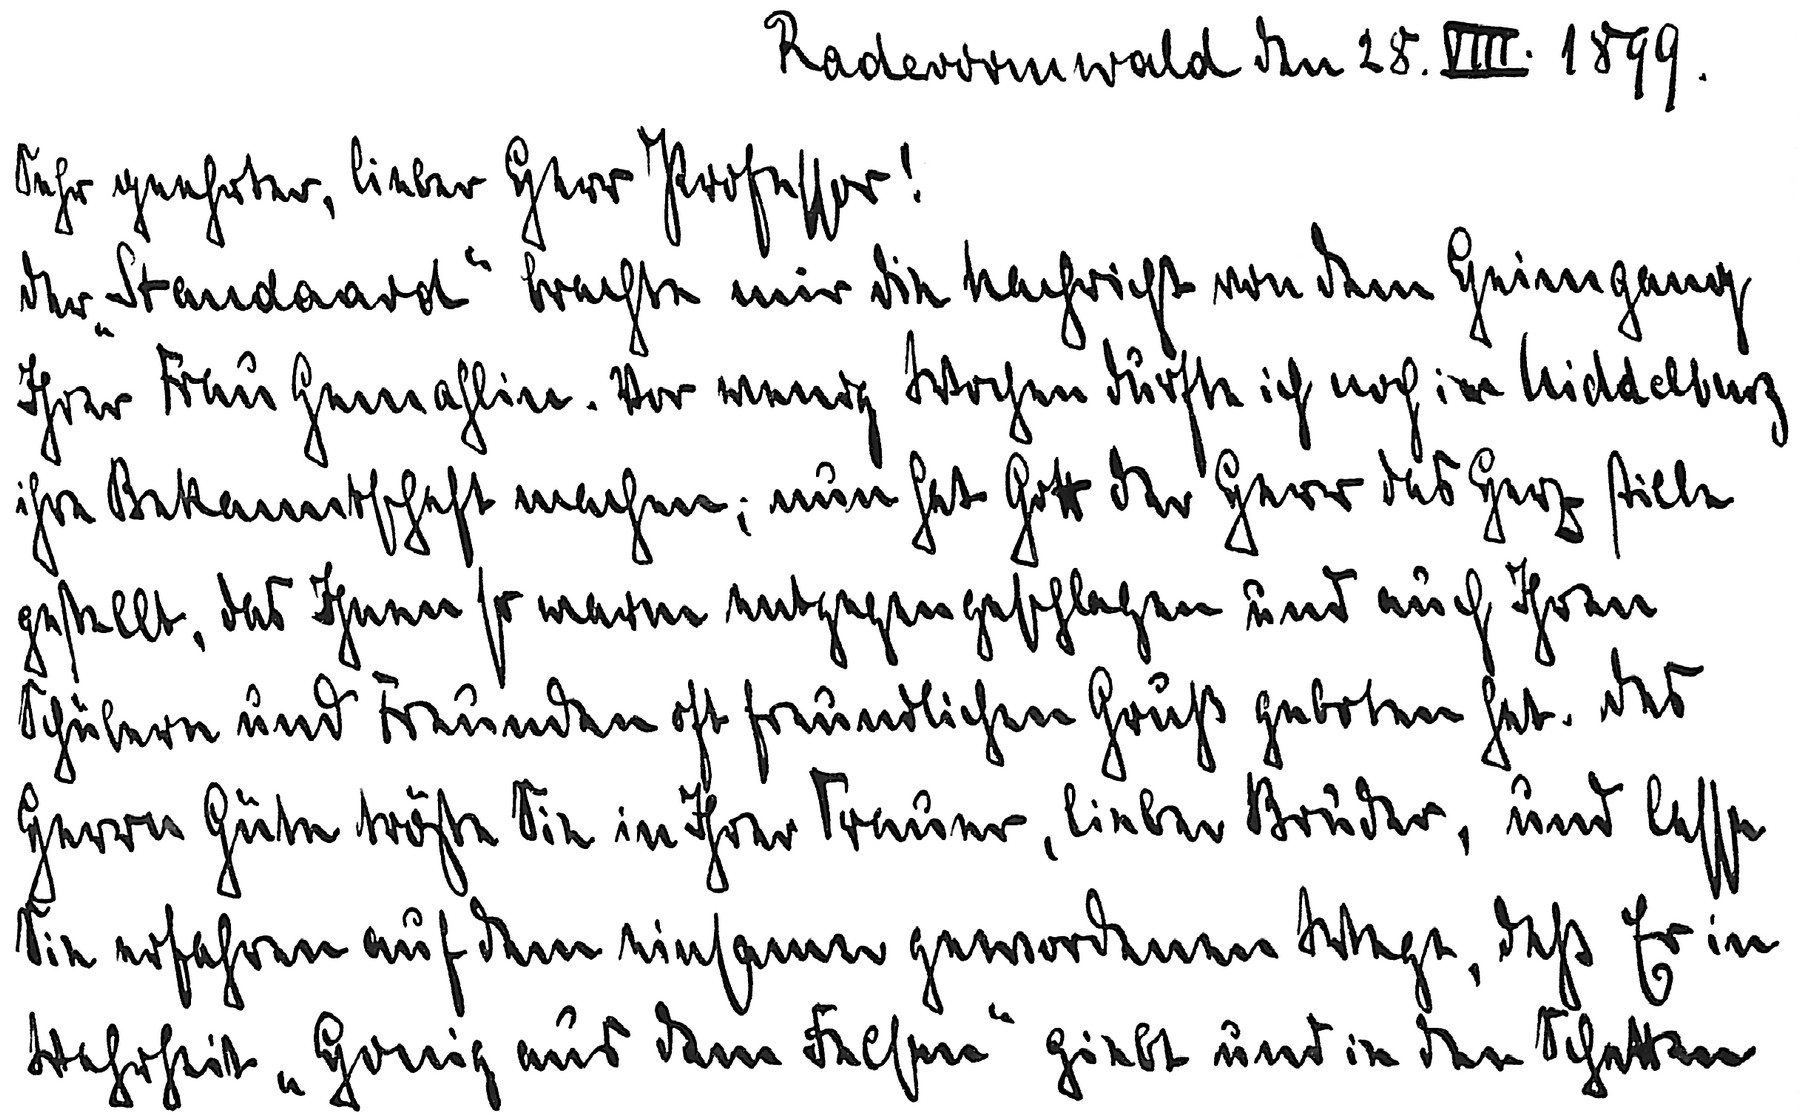 Radevormwald den 28. VIII. 1899.
Sehr geehrter, lieber Herr Professor!
Der „Standaard“ brachte mir die Nachricht von dem Heimgang
Ihrer Frau Gemahlin. Vor wenig Wochen durfte ich noch in Middelburg
ihre Bekanntschaft machen; nun hat Gott der Herr das Herz stille
gestellt, das Ihnen so warm entgegengeschlagen und auch Ihren
Schülern und Freunden oft freundlichen Gruß geboten hat. Des
Herrn Güte tröste Sie in Ihrer Trauer, lieber Bruder, und lasse
Sie erfahren auf dem einsamer gewordenen Wege, daß Er in
Wahrheit „Honig aus dem Felsen“ giebt und in den Schatten